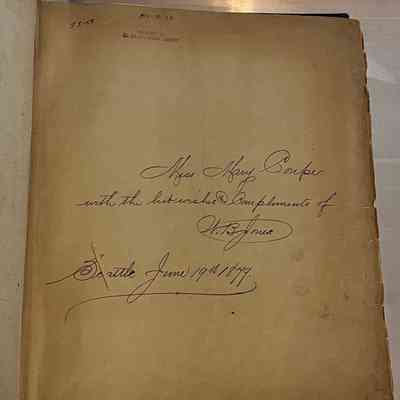 Miss Mary Couper
with the best wishes & Compliments of
W. B. Jones
Seattle June 19th 1877